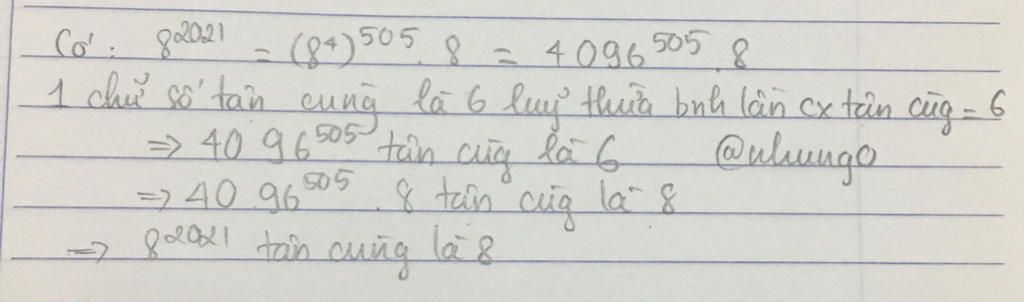 Có: 8^2021 = (8^4)^505 . 8 = 4096^505 . 8
1 chữ số tận cùng là 6 luỹ thừa bnh lần cx tận cùg = 6
=> 4096^505 tận cùg là 6 @nhungo
=> 4096^505 . 8 tận cùg là 8
=> 8^2021 tận cùng là 8